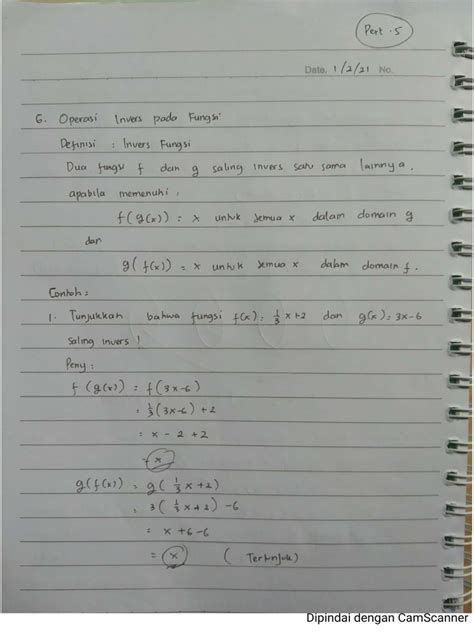 Pert . 5
Date. 1/2/21 No.
6. Operasi Invers pada Fungsi
Definisi : Invers Fungsi
Dua fungsi f dan g saling invers satu sama lainnya.
apabila memenuhi ,
f(g(x)) = x untuk semua x dalam domain g
dan
g(f(x)) = x untuk semua x dalam domain f.
Contoh :
1. Tunjukkan bahwa fungsi f(x) : 1/3 x + 2 dan g(x) : 3x - 6
saling invers !
Peny :
f(g(x)) = f(3x - 6)
= 1/3(3x - 6) + 2
= x - 2 + 2
= x
g(f(x)) = g(1/3 x + 2)
= 3(1/3 x + 2) - 6
= x + 6 - 6
= x (Tertunjuk)
Dipindai dengan CamScanner